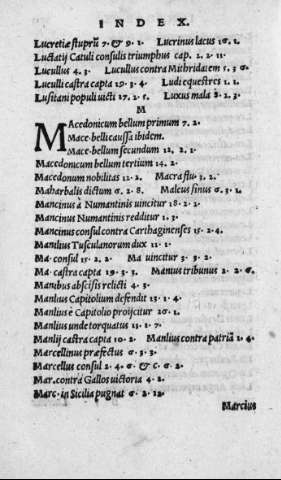 INDEX.
Lucretiæ stuprũ 7. & 9. 1. Lucrinus lacus 16. 1.
Luctatij Catuli consulis triumphus cap. 2. 2. 11.
Lucullus 4. 3. Lucullus contra Mithridatem 5. 3 6.
Luculli castra capta 19. 3. 4. Ludi equestres 1. 1.
Lusitani populi victi 17. 2. 5. Luxus mala 8. 2. 3.
M
MAcedonicum bellum primum 7. 2.
Mace. belli caussa ibidem.
Mace. bellum secundum 12. 2. 2.
Macedonicum bellum tertium 14. 2.
Macedonum nobilitas 12. 2. Macra flu. 3. 2.
Maharbalis dictum 6. 2. 8. Maleus sinus 6. 3. 1.
Mancinus à Numantinis vincitur 18. 2. 2.
Mancinus Numantinis redditur 1. 3.
Mancinus consul contra Carthaginenses 15. 2. 4.
Manlius Tusculanorum dux 11. 1.
Ma. consul 15. 2. 2. Ma vincitur 3. 3. 2.
Ma. castra capta 19. 3. 3. Manius tribunus 2. 2. 6.
Manibus abscisis relicti 4. 3.
Manlius Capitolium defendit 13. 1. 4.
Manlius è Capitolio proijcitur 26. 1.
Manlius unde torquatus 13. 1. 7.
Manlij castra capta 10. 2. Manlius contra patriã 2. 4.
Marcellinus præfectus 6. 3. 3.
Marcellus consul 2. 4. 6. & c. 6. 2.
Mar. contra Gallos victoria 4. 2.
Marc. in Sicilia pugnat 6. 2. 12.
Marcius